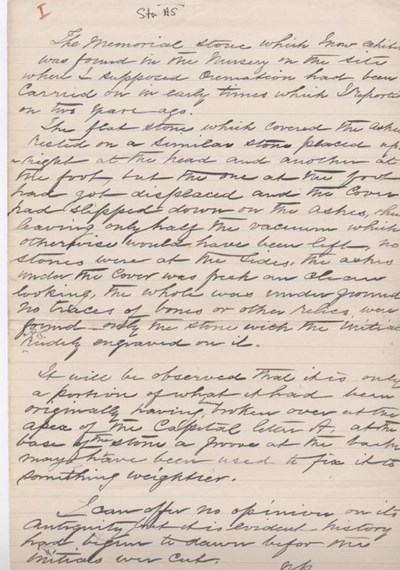 I
Sta. AS
The Memorial stone which I now exhibit
was found in the Nursery on the site
where I supposed Cremation had been
carried on in early times which I reported
on two years ago.
The flat stone which covered the Ashes
rested on a similar stone placed up
right at the head and another at
the foot, but the one at the foot
had got displaced and the Cover
had slipped down on the Ashes,
leaving only half the vacuum which
otherwise would have been left, no
stones were at the sides, the ashes
under the Cover was fresh an clean
looking, the whole was under ground
no traces of bones or other relics were
found only the stone with the initials
rudely engraved on it.
It will be observed that it is only
a portion of what it had been
originally having broken over at the
apex of the Capital letter A. at the
base of the stone a groove at the back
may have been used to fix it to
something weightier.
I can offer no opinion on its
Antiquity but it is evident history
had begun to dawn befor the
initials wer cut.